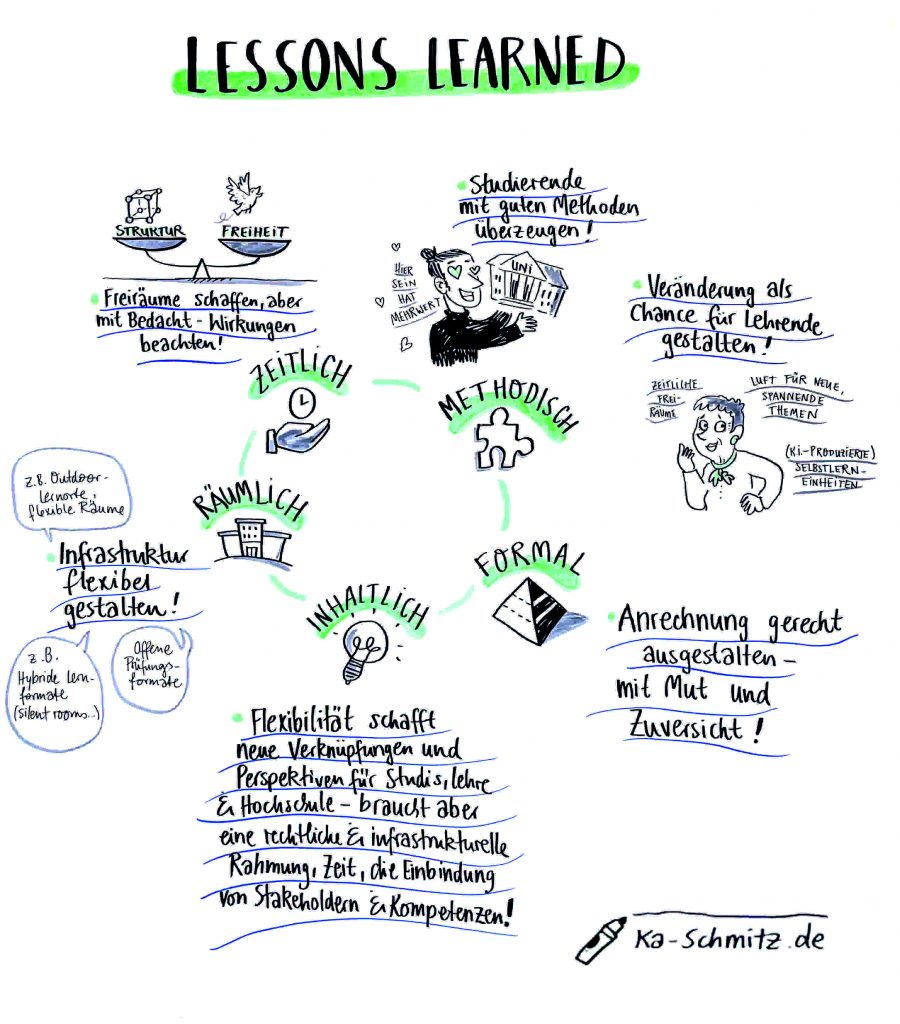 LESSONS LEARNED
STRUKTUR
FREIHEIT
• Freiräume schaffen, aber
mit Bedacht - Wirkungen
beachten!
• Studierende
mit guten Methoden
überzeugen!
HIER
SEIN
HAT
MEHRWERT
UNI
• Veränderung als
Chance für Lehrende
gestalten!
ZEITLICHE
FREI-
RÄUME
LUFT FÜR NEUE,
SPANNENDE
THEMEN
(KI-PRODUZIERTE)
SELBSTLERN-
EINHEITEN
ZEITLICH
METHODISCH
RÄUMLICH
FORMAL
INHALTLICH
z.B. Outdoor-
Lernorte,
flexible Räume
• Infrastruktur
flexibel
gestalten!
z.B.
Hybride Lern-
formate
(silent rooms...)
Offene
Prüfungs-
formate
• Anrechnung gerecht
ausgestalten -
mit Mut und
Zuversicht!
• Flexibilität schafft
neue Verknüpfungen und
Perspektiven für Studis, Lehre
& Hochschule - braucht aber
eine rechtliche & infrastrukturelle
Rahmung, Zeit, die Einbindung
von Stakeholdern & Kompetenzen!
Ka-Schmitz.de